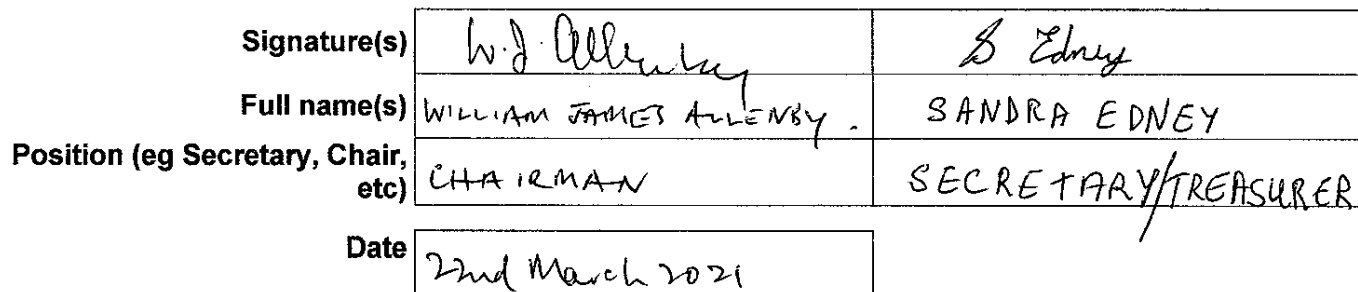 Signature(s) W.J. Allenby S Edney
Full name(s) WILLIAM JAMES ALLENBY. SANDRA EDNEY
Position (eg Secretary, Chair,
etc) CHAIRMAN SECRETARY/TREASURER
Date 22nd March 2021